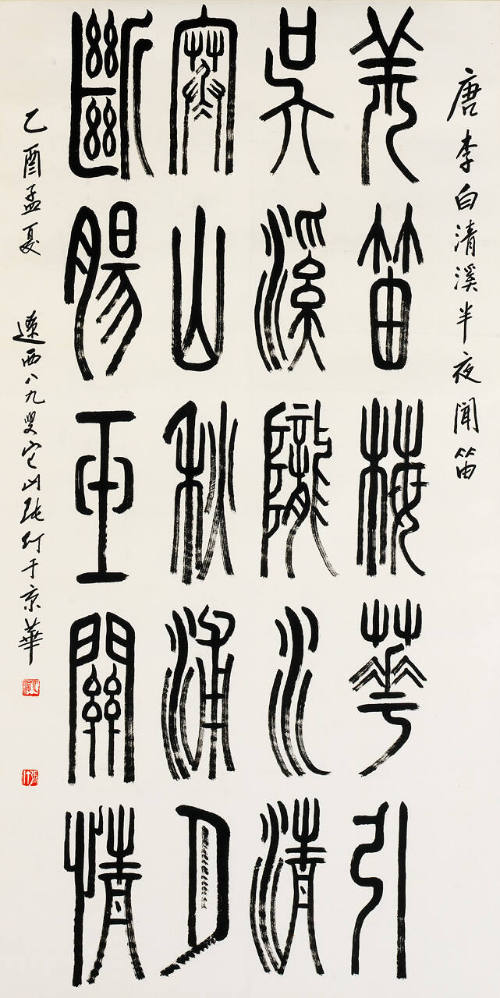 唐李白清溪半夜聞笛
羌笛梅華引
吳溪隴水清
寒山秋浦月
斷腸玉關情
乙酉孟夏
遼西八九叟它山張仃于京華